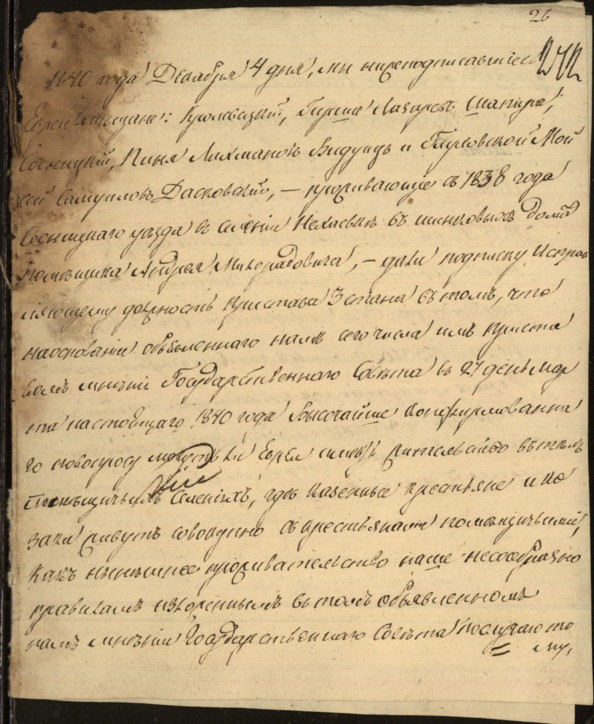 26
1840 года Декабря 4 дня, мы нижеподписавшиеся
Евреи Мещане: Кролевецкий, Гирша Лазаревъ Шапира,
Сосницкій, Пиня Лихмановъ и Глуховской Мой
сей Самуиловъ Дасковскій, – проживающіе съ 1838 года
Сосницкаго уезда въ селеніи въ шинковомъ доме
помещика Андрея Милорадовича, – дали подписку Исправ
ляющему должность Пристава 3 стана въ томъ, что
на основаніи объявленнаго намъ сего числа имъ Приста
вомъ мненія Государственнаго Совета въ 27 день мар
та настоящаго 1840 года Высочайше конфирмованна
го по вопросу могутъ ли Евреи иметь жительство въ техъ
помещичьихъ селеніяхъ, где казенные крестьяне и ко
заки живутъ совокупно съ крестьянами помещичьими,
какъ нынешнее проживательство наше несообразно
правиламъ изъясненнымъ въ томъ объявленномъ
намъ мненіи Государственнаго Совета то
му,